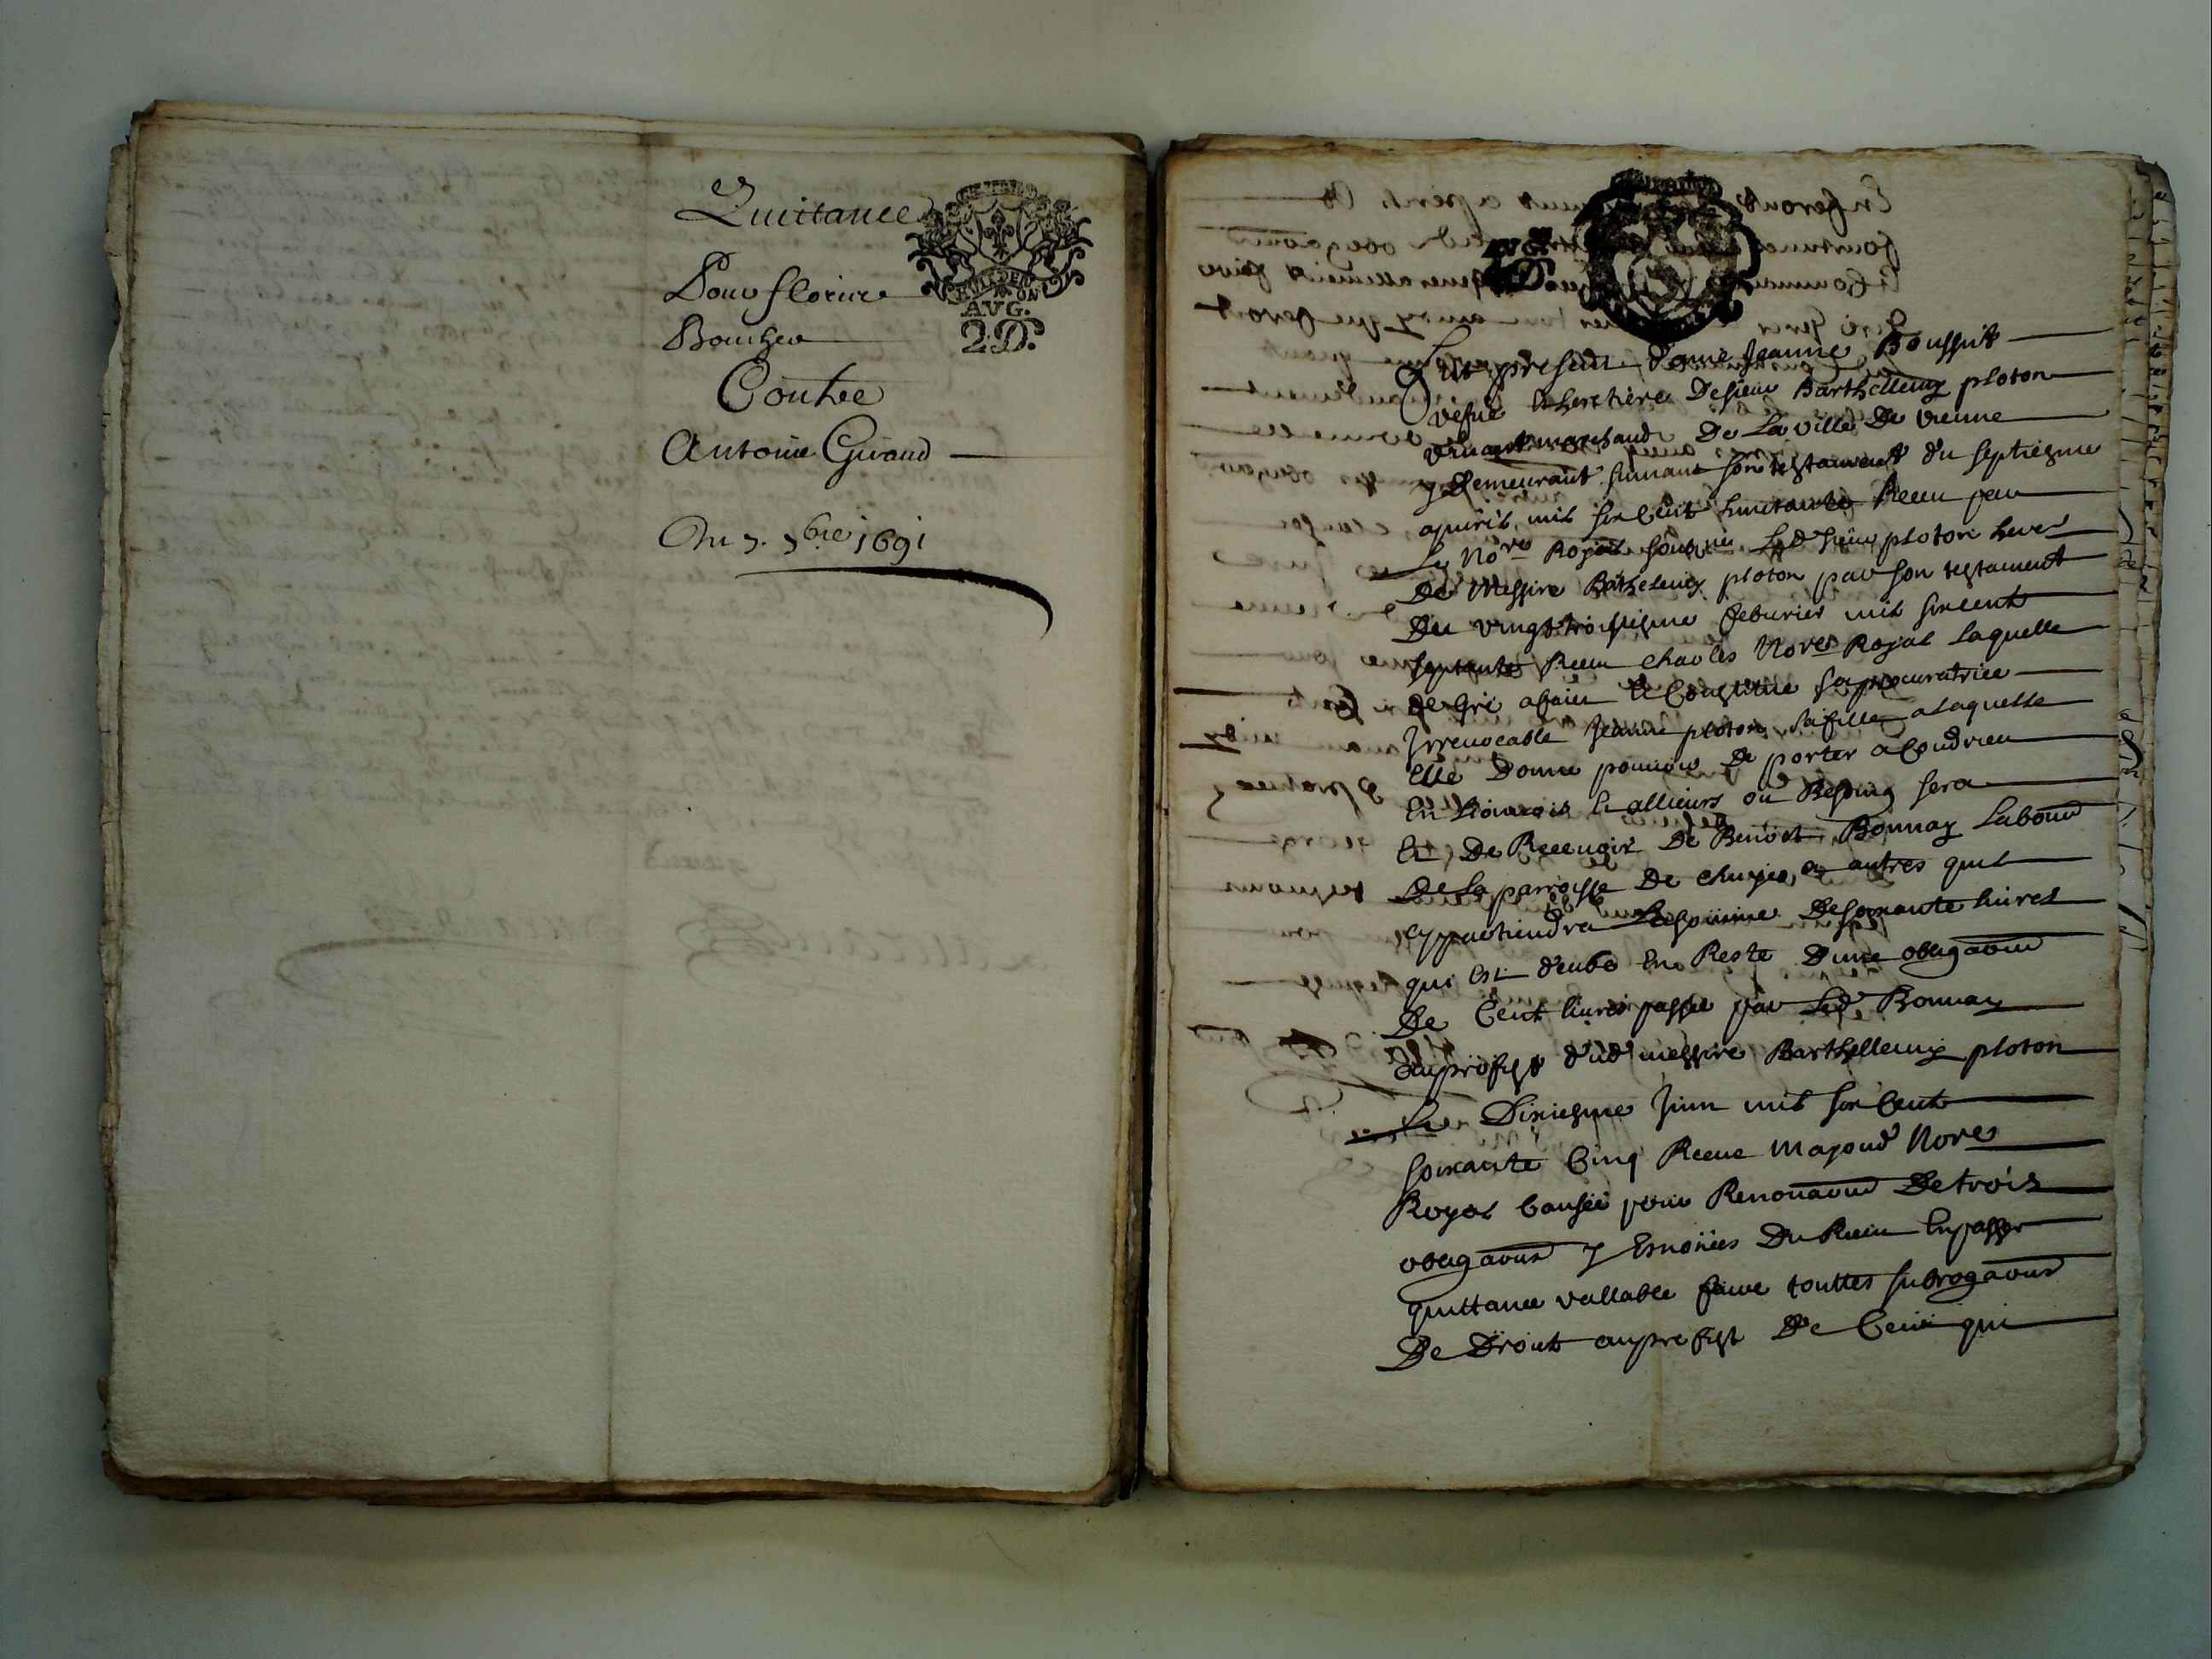 Quittance
Pour florie
Boucher
Contre
Antoine Giraud
Du 7. 7bre 1691
AVG.
2.D.
Fut presente dame Jeanne Boussut
vefue & heretiere de sieur Barthellemy ploton
vivant marchand de la ville de vienne
y demeurant suivant son testament du septiesme
apuril mil six cent huictante Receu par
Le Nore Royal soubné Led sieur ploton herer
De Messire Bathelemy ploton par son testament
Du vingt troisiesme feburier mil six cent
septante Receu Charles Nore Royal laquelle
de gré a faict & Constitue sa procuratrice
Irreuocable Jeanne ploton sa fille a laquelle
elle donne pouuoir de porter a Condrieu
en Lionnois & allieurs ou Besoing sera
et De Receuoir De Benoist Bonnay Labour
de la parroisse De chuyes, ou autres quil
appartiendra La somme de soixante liures
qui est deube En Reste d'une obligaon
De Cent liures passée par Led Bonnay
au proffist dud messire Barthellemy ploton
Le Dixiesme Juin mil six Cent
soixante Cinq Receue Mazoud Nore
Royal Causée pour Renouaon De trois
obligaons y Enoncées Du Receu En passer
quittance vallable faire touttes subrogaons
De Droict au proffist De Ceux qui